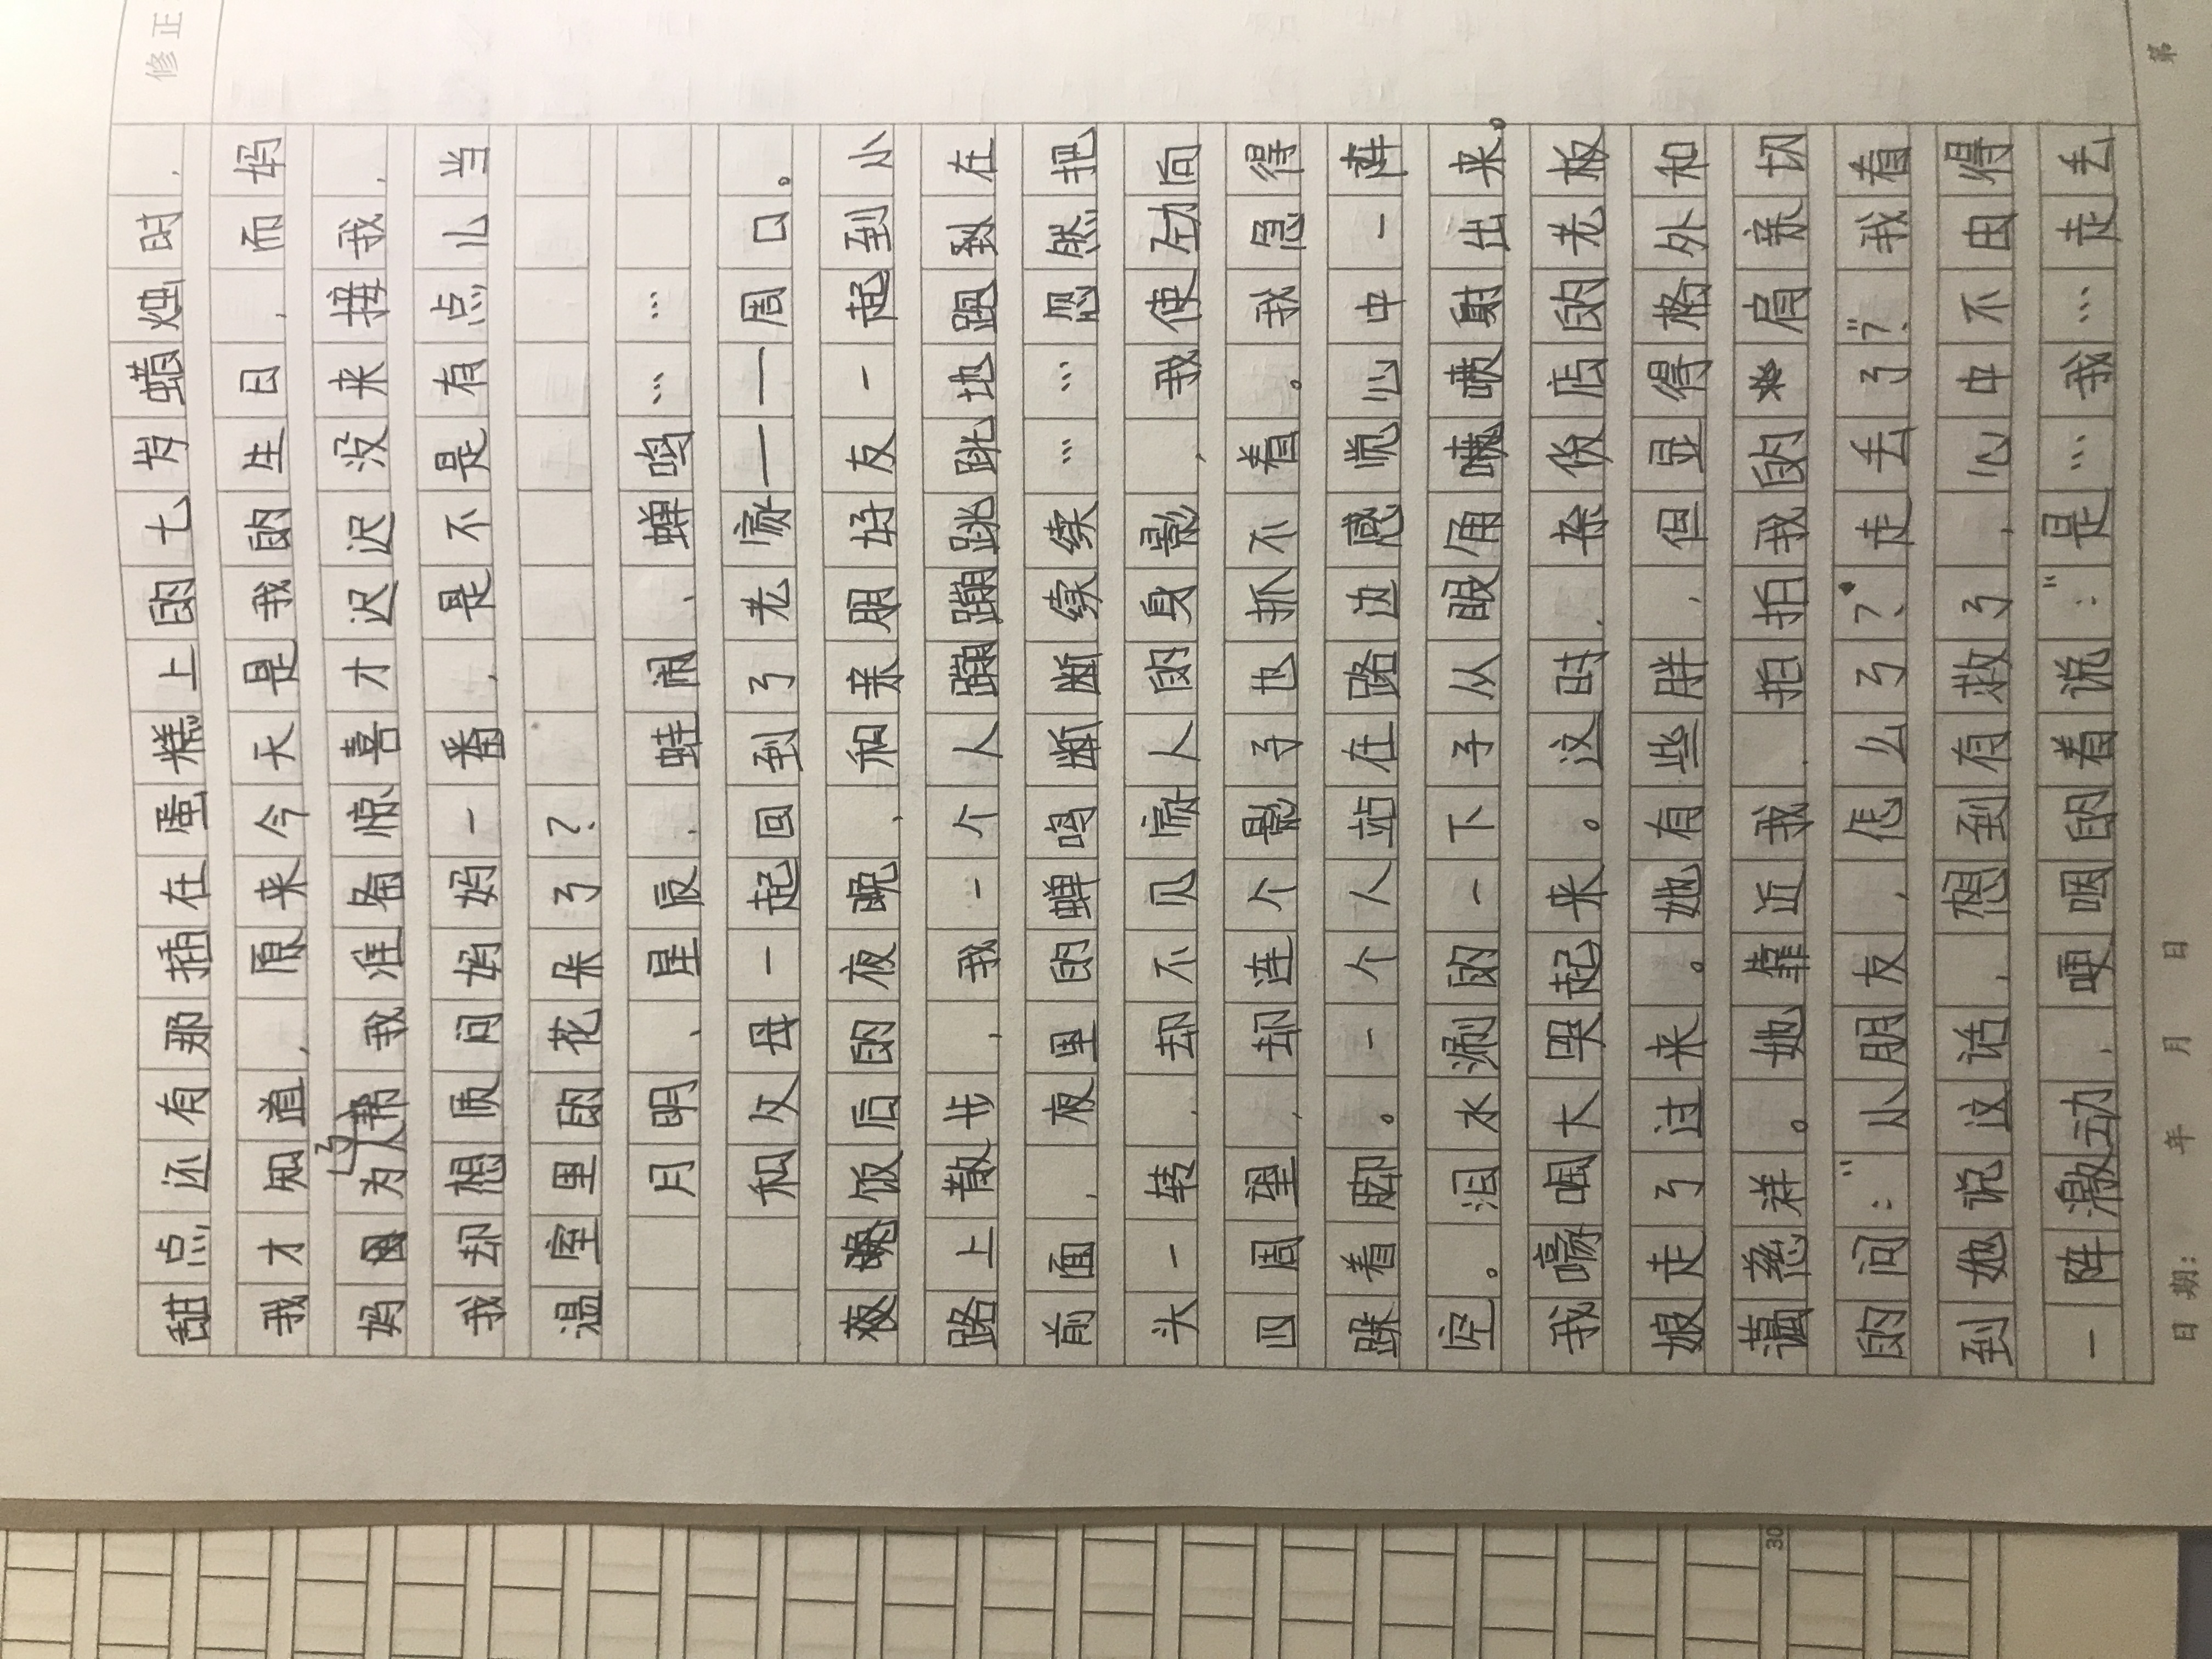 修正
甜点还有那插在蛋糕上的七岁蜡烛时，
我才知道，原来今天是我的生日，而妈
妈为了帮我准备惊喜才迟迟没来接我，
我却想质问妈妈一番，是不是有点儿当
温室里的花朵了？
月明、星辰，蛙闹、蝉鸣……
和父母一起回到了老家——周口。
晚饭后的夜晚，和亲朋好友一起到小
路上散步，我一个人蹦蹦跳跳地跑到在
前面，夜里的蝉鸣断断续续……忽然把
头一转，却不见家人的身影，我使劲向
四周望，却连个影子也抓不着。我急得
跺着脚。一个人站在路边感觉心中一阵
空。泪水涮的一下子从眼角喷射出来。
我嚎啕大哭起来。这时，杂货店的老板
娘走了过来。她有些胖，但显得格外和
蔼慈祥。她靠近我，拍拍我的肩亲切
的问：“小朋友，怎么了？走丢了？”我看
到她说这话，想到有救了，心中不由得
一阵激动，哽咽着说：“是……我……走丢
日期： 年 月 日 第
30